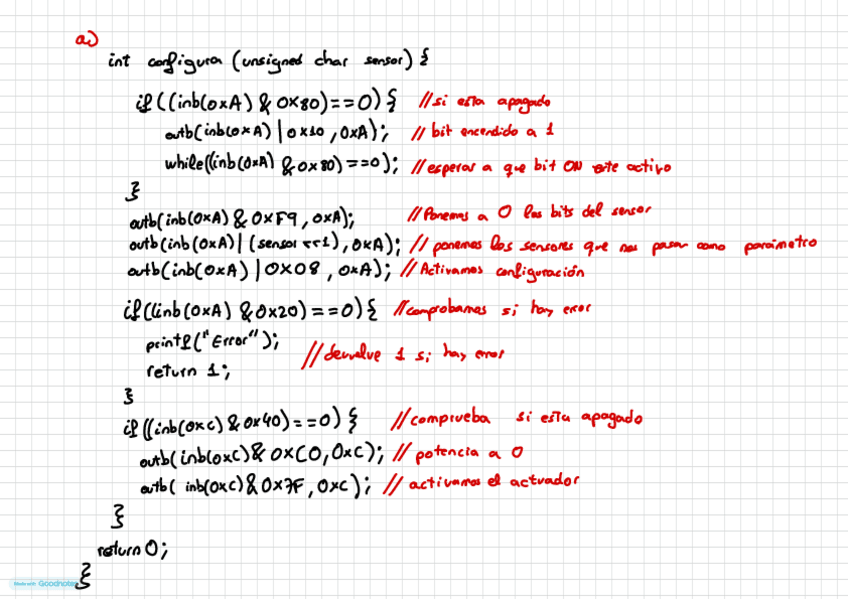 a)
int configura (unsigned char sensor) {
if((inb(0xA) & 0x80)==0) { //si esta apagado
outb(inb(0xA) | 0x10, 0xA); // bit encendido a 1
while((inb(0xA) & 0x80)==0); //esperar a que bit ON este activo
}
outb(inb(0xA) & 0xF9, 0xA); //Ponemos a 0 los bits del sensor
outb(inb(0xA) | (sensor <<1), 0xA); // ponemos los sensores que nos pasan como parámetro
outb(inb(0xA) | 0x08, 0xA); //Activamos configuración
if((inb(0xA) & 0x20)==0) { //comprobamos si hay error
printf("Error");
return 1; //devuelve 1 si hay error
}
if((inb(0xC) & 0x40)==0) { //comprueba si esta apagado
outb(inb(0xC) & 0xC0, 0xC); // potencia a 0
outb( inb(0xC) & 0x7F, 0xC); // activamos el actuador
}
return 0;
}
Made with Goodnotes